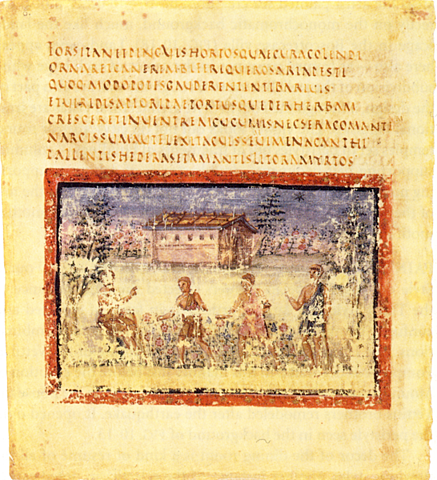 FORSITANETPINGVISHORTOSQVAECVRACOLENDI
ORNARETCANEREMBIFERIQVEROSARIAPESTI
QVOQMODOPOTISGAVDERENTINTIBARIVIS
ETVIRIDISAPIORIPAETORTVSQVEPERHERBAM
CRESCERETINVENTREMCVCVMISNECSERACOMANTE
NARCISSVMAVTFLEXITACVISSEMVIMENACANTHI
PALLENTISHEDERASETAMANTISLITORAMYRTOS